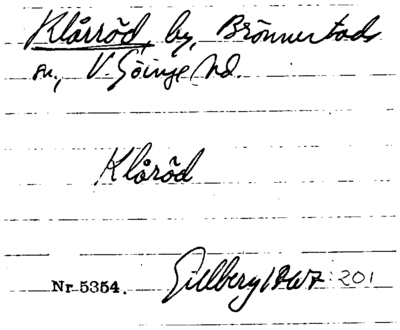 Klårröd, by, Brönnestads
sn., V. Göinge hd.
Klåröd
Nr 5354. Gillberg 1767: 201